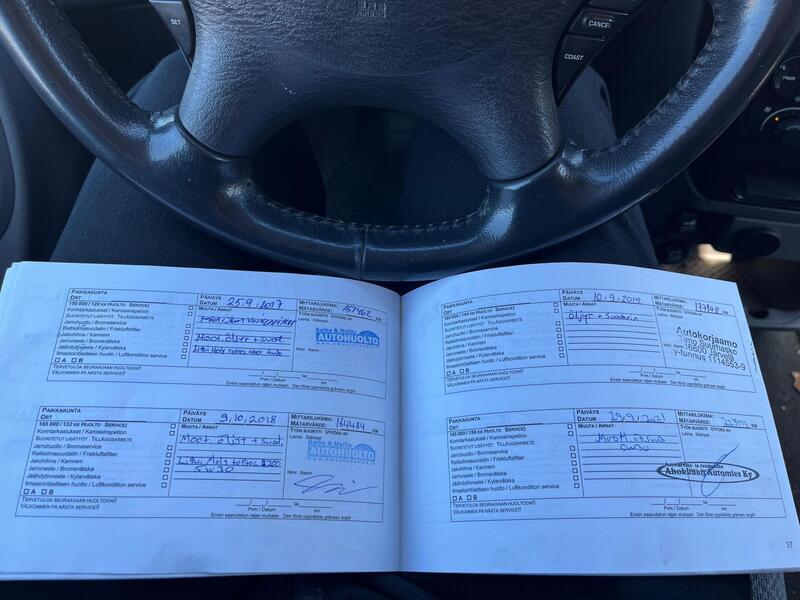 SET
CANCEL
COAST
PAIKKAKUNTA
ORT
PÄIVÄYS
DATUM 25.9.2017
MITTARILUKEMA:
MÄTARVÄRDE: 151462 KM
150 000 / 120 KK HUOLTO SERVICE)
Korintarkastukset / Karossinspetion
SUORITETUT LISÄTYÖT TILLÄGSARBETE
Jarruhuolto / Bromsservice
Raitisilmasuodatin / Friskluftsfilter
Jakohihna / Kamrem
Jarruneste / Bromsvätska
Jäähdytinneste / Kylarvätska
Ilmastointilaitteen huolto / Luftkondition service
A B
MUUTA / ANNAT
Moot. öljyt + suod.
TYÖN SUORITTI UTFÖRD AV
Leima Stämpel
Kalke & Matile
AUTOHUOLTO
Nimi Namn
TERVETULOA SEURAAVAAN HUOLTOON!!
VÄLKOMMEN PÅ NÄSTA SERVICE!!
Pvm / Datum km
Ensin saavutetun rajan mukaan Den först uppnådda gränsen avgör
PAIKKAKUNTA
ORT
PÄIVÄYS
DATUM 9.10.2018
MITTARILUKEMA:
MÄTARVÄRDE: 164484 KM
165 000 / 132 KK HUOLTO SERVICE)
Korintarkastukset / Karossinspetion
SUORITETUT LISÄTYÖT TILLÄGSARBETE
Jarruhuolto / Bromsservice
Raitisilmasuodatin / Friskluftsfilter
Jakohihna / Kamrem
Jarruneste / Bromsvätska
Jäähdytinneste / Kylarvätska
Ilmastointilaitteen huolto / Luftkondition service
A B
MUUTA / ANNAT
Moot. öljyt + suod.
5W30
TYÖN SUORITTI UTFÖRD AV
Leima Stämpel
Kalke & Matile
AUTOHUOLTO
Nimi Namn
TERVETULOA SEURAAVAAN HUOLTOON!!
VÄLKOMMEN PÅ NÄSTA SERVICE!!
Pvm / Datum km
Ensin saavutetun rajan mukaan Den först uppnådda gränsen avgör
PAIKKAKUNTA
ORT
PÄIVÄYS
DATUM 10.9.2019
MITTARILUKEMA:
MÄTARVÄRDE: 177108 KM
Korintarkastukset / Karossinspetion
SUORITETUT LISÄTYÖT TILLÄGSARBETE
Jarruhuolto / Bromsservice
Raitisilmasuodatin / Friskluftsfilter
Jakohihna / Kamrem
Jarruneste / Bromsvätska
Jäähdytinneste / Kylarvätska
Ilmastointilaitteen huolto / Luftkondition service
A B
MUUTA / ANNAT
Öljyt + Suodatin
TYÖN SUORITTI UTFÖRD AV
Autokorjaamo
Timo Suumasko
16600 Järvelä
y-tunnus 1114553-9
TERVETULOA SEURAAVAAN HUOLTOON!!
VÄLKOMMEN PÅ NÄSTA SERVICE!!
Pvm / Datum km
Ensin saavutetun rajan mukaan Den först uppnådda gränsen avgör
PAIKKAKUNTA
ORT
PÄIVÄYS
DATUM 29.9.2021
MITTARILUKEMA:
MÄTARVÄRDE: KM
195 000 / 156 KK HUOLTO SERVICE)
Korintarkastukset / Karossinspetion
SUORITETUT LISÄTYÖT TILLÄGSARBETE
Jarruhuolto / Bromsservice
Raitisilmasuodatin / Friskluftsfilter
Jakohihna / Kamrem
Jarruneste / Bromsvätska
Jäähdytinneste / Kylarvätska
Ilmastointilaitteen huolto / Luftkondition service
A B
MUUTA / ANNAT
5W30
TYÖN SUORITTI UTFÖRD AV
Leima Stämpel
Nimi Namn
Ahokkaan Automies Ky
TERVETULOA SEURAAVAAN HUOLTOON!!
VÄLKOMMEN PÅ NÄSTA SERVICE!!
Pvm / Datum km
Ensin saavutetun rajan mukaan Den först uppnådda gränsen avgör
37